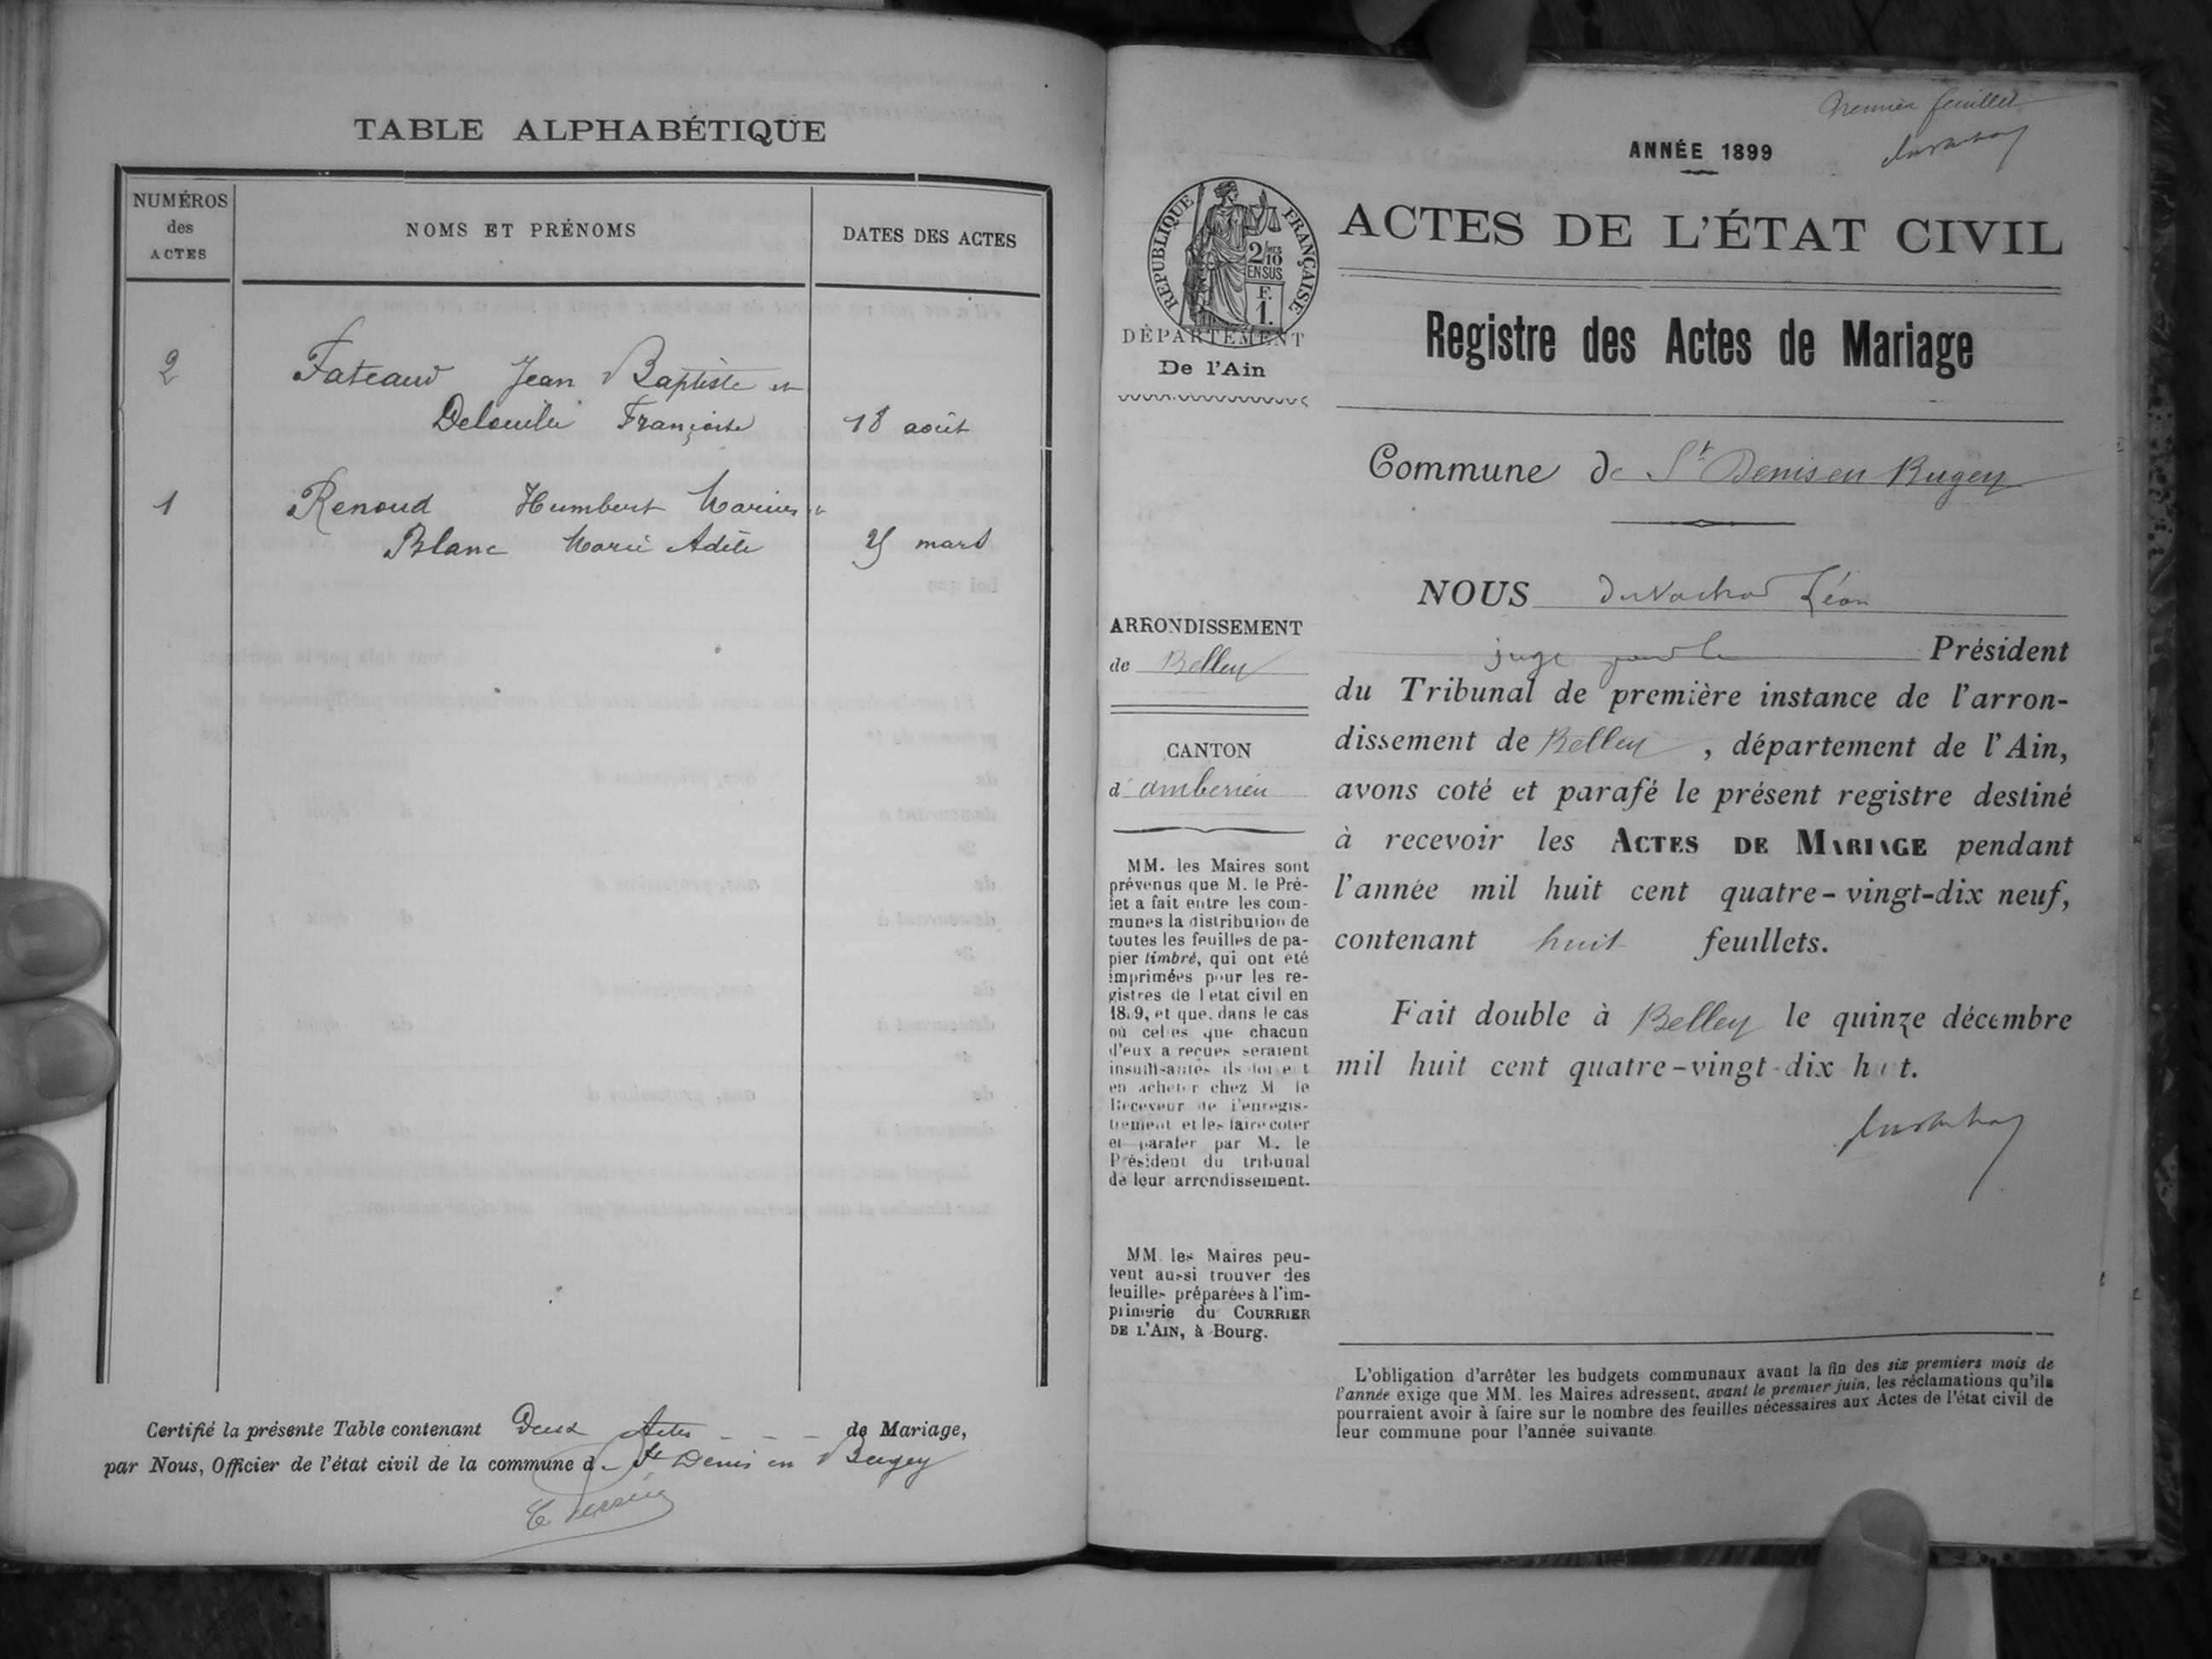 TABLE ALPHABÉTIQUE
NUMÉROS
des
ACTES
NOMS ET PRÉNOMS
DATES DES ACTES
2
Jean Baptiste et
Françoise
18 août
1
Renoud Humbert Marius et
Blanc Marie Adèle
25 mars
Certifié la présente Table contenant Deux Actes - - - de Mariage,
par Nous, Officier de l'état civil de la commune d - St Denis en Bugey
Premier feuillet
ANNÉE 1899
RÉPUBLIQUE FRANÇAISE
2/10
EN SUS
F.
1.
ACTES DE L'ÉTAT CIVIL
DÉPARTEMENT
De l'Ain
Registre des Actes de Mariage
Commune de St Denis en Bugey
ARRONDISSEMENT
de Belley
CANTON
d'amberieu
MM. les Maires sont
prévenus que M. le Pré-
fet a fait entre les com-
munes la distribution de
toutes les feuilles de pa-
pier timbré, qui ont été
imprimées pour les re-
gistres de l'etat civil en
18.9, et que, dans le cas
où celles que chacun
d'eux a reçues seraient
insuffisantes ils doivent
en acheter chez M le
Receveur de l'enregis-
trement et les faire coter
et parafer par M. le
Président du tribunal
de leur arrondissement.
MM les Maires peu-
vent aussi trouver des
feuilles préparées à l'im-
primerie du COURRIER
DE L'AIN, à Bourg.
NOUS Léon
juge pour le Président
du Tribunal de première instance de l'arron-
dissement de Belley, département de l'Ain,
avons coté et parafé le présent registre destiné
à recevoir les ACTES DE MARIAGE pendant
l'année mil huit cent quatre-vingt-dix neuf,
contenant huit feuillets.
Fait double à Belley le quinze décembre
mil huit cent quatre-vingt-dix huit.
L'obligation d'arrêter les budgets communaux avant la fin des six premiers mois de
l'année exige que MM. les Maires adressent, avant le premier juin, les réclamations qu'ils
pourraient avoir à faire sur le nombre des feuilles nécessaires aux Actes de l'état civil de
leur commune pour l'année suivante